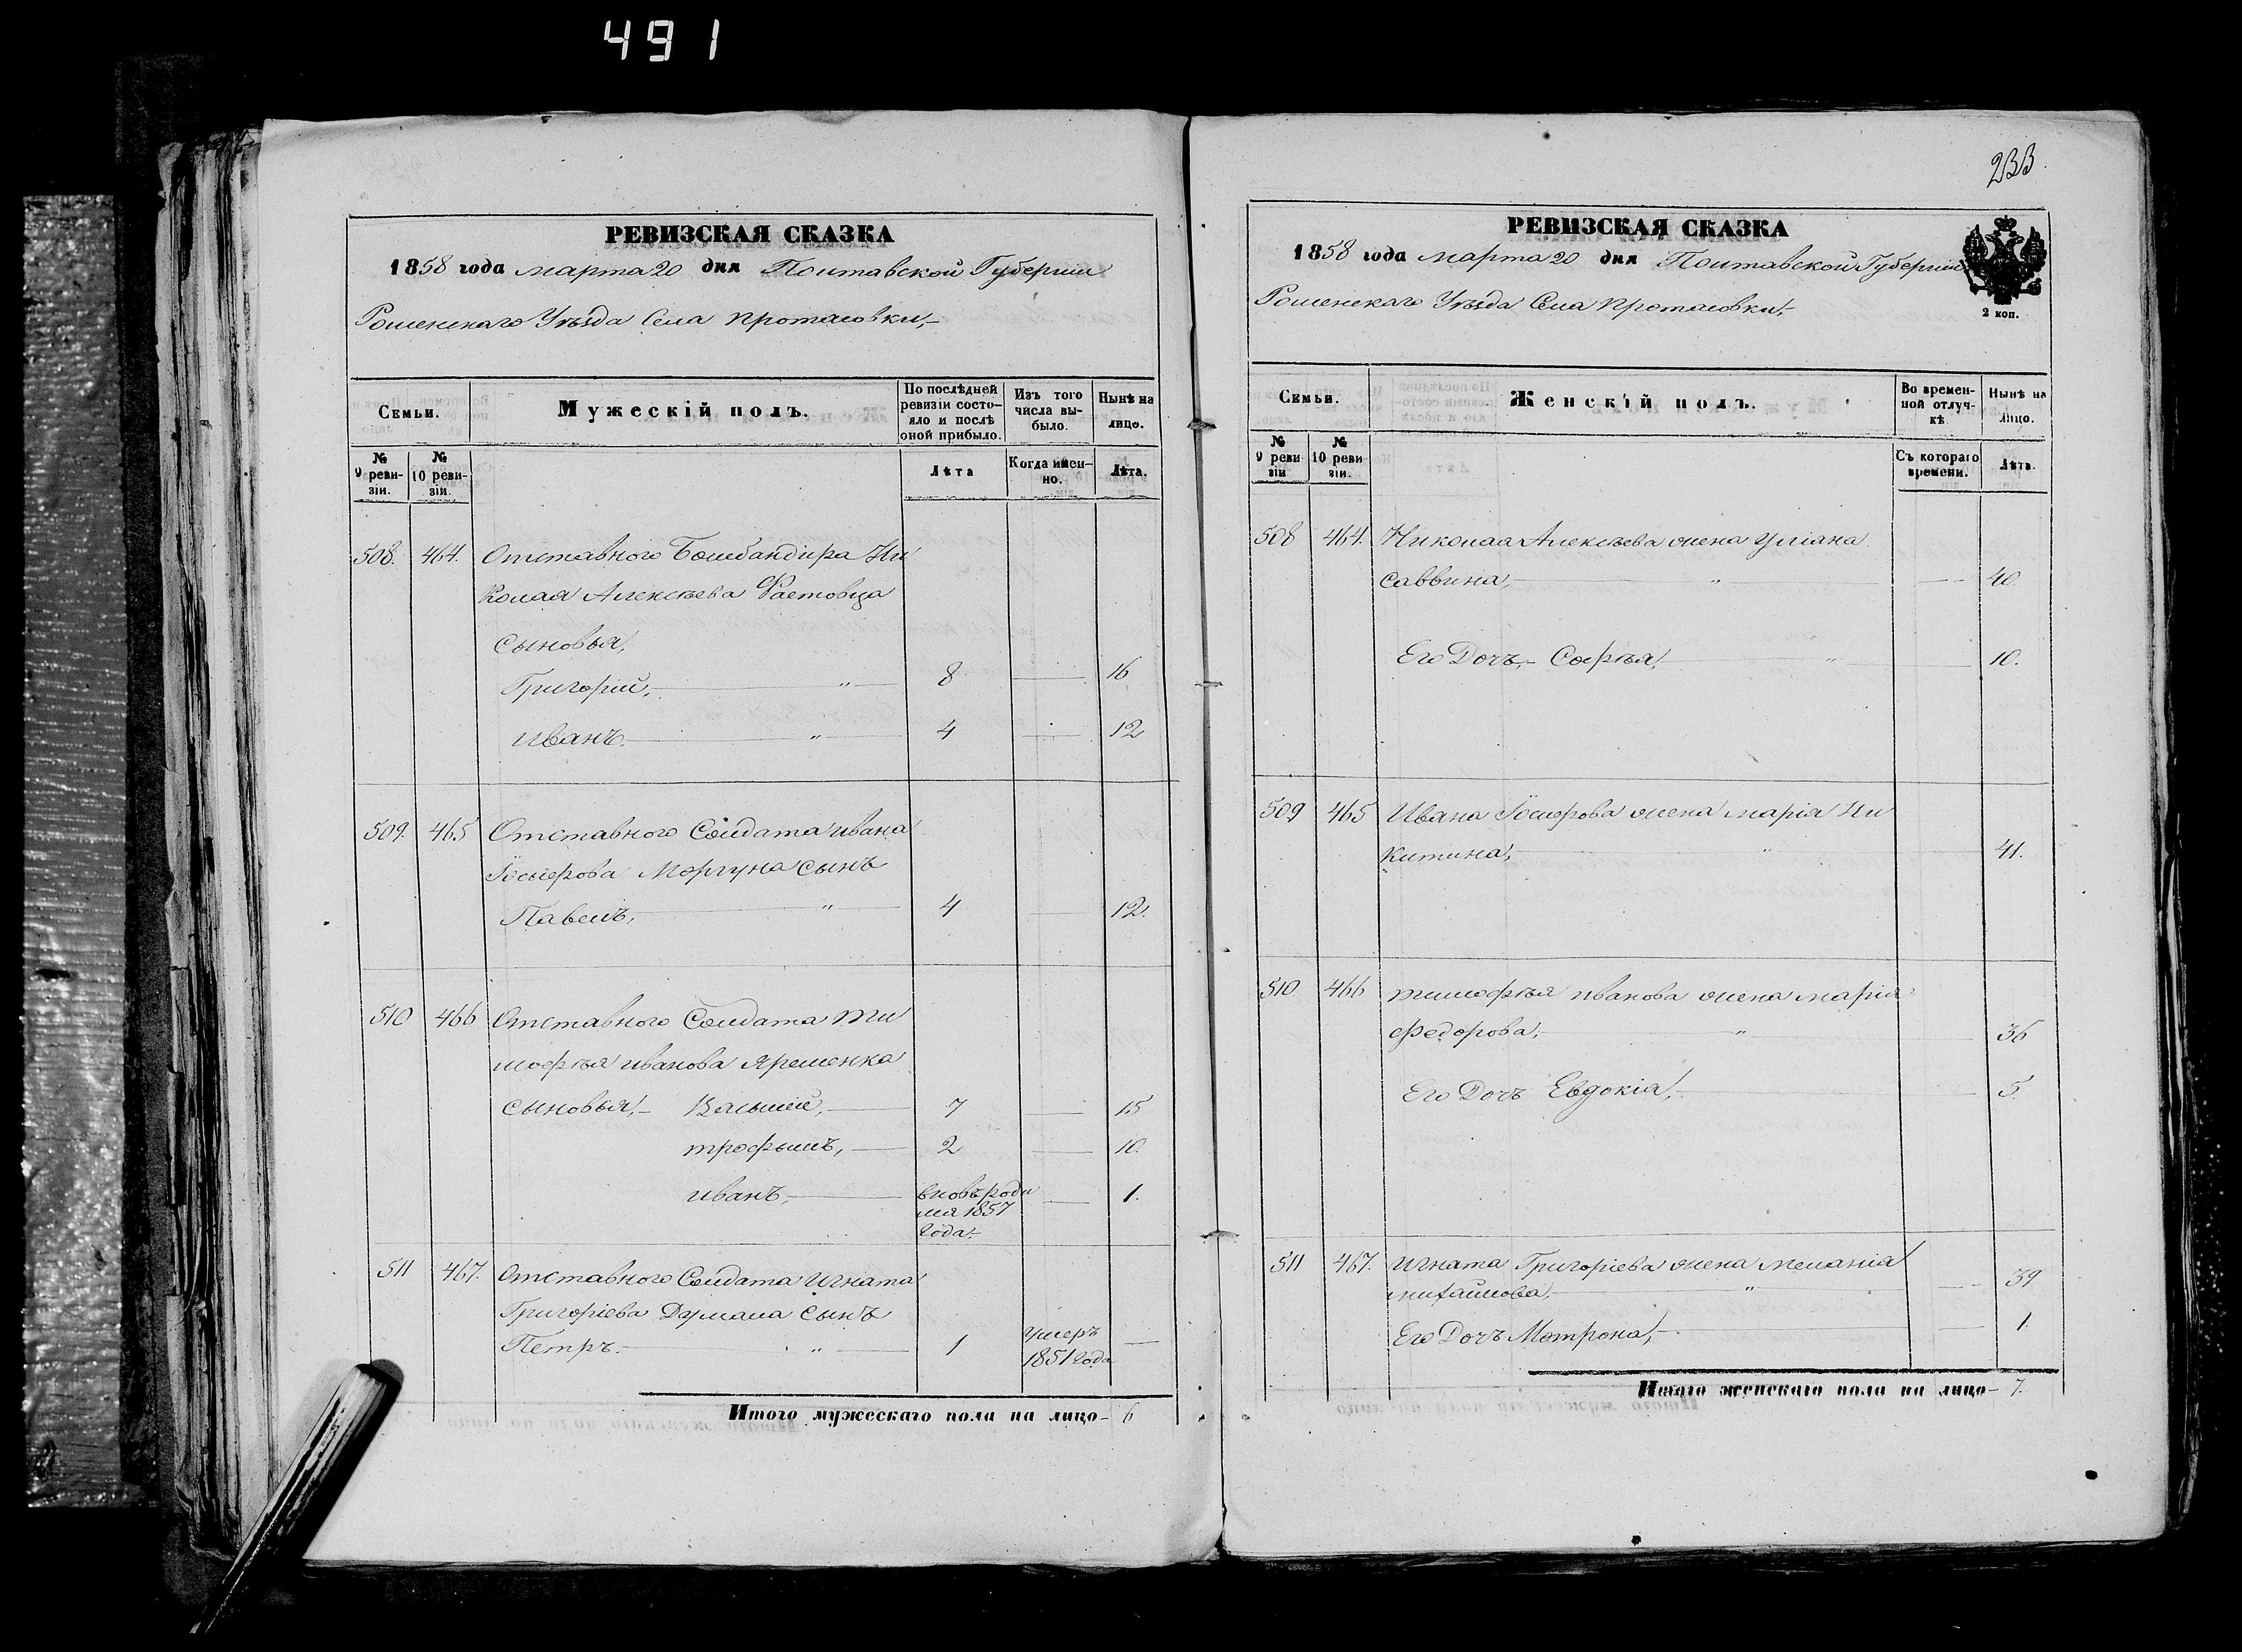 491
РЕВИЗСКАЯ СКАЗКА
1858 года марта 20 дня Полтавской Губернии
Роменскаго Уѣзда Села Протасовки,
Семьи.
Мужескій полъ.
По послѣдней ревизіи состо-
яло и послѣ оной прибыло.
Изъ того числа вы-
было.
Нынѣ на лицо.
№ 9 реви-
зіи.
№ 10 реви-
зіи.
Лѣта
Когда имен-
но.
Лѣта.
508. 464. Отставного Бомбандира Ни
колая Алексѣева Фастовца
сыновья,
Григорій, " 8 16
иванъ. " 4 12
509. 465 Отставного Солдата ивана
Іосифова Моргуна сынъ
Павелъ, " 4 12.
510 466 Отставного Солдата Ти
мофѣя иванова Яременка
сыновья, Василій, 7 15
трофимъ, 2 10.
иванъ, вновь роди 1.
лся 1857
года.
511 467. Отставного Солдата Игната
Григоріева Думала сынъ
Петръ. " 1 умеръ
1851 года
Итого мужескаго пола на лицо 6
233.
РЕВИЗСКАЯ СКАЗКА
1858 года марта 20 дня Полтавской Губерніи
2 коп.
Роменскаго Уѣзда Села Протасовки,
Семьи.
Женскій полъ.
Во времен-
ной отлуч-
кѣ.
Нынѣ на лицо.
№ 9 реви
зіи
№ 10 реви
зіи.
Съ котораго времени.
Лѣта.
508 464. Николая Алексѣева жена Уліана
Саввина, " 40
Его Дочь, Софья, " 10.
509 465 Ивана Іосифова жена марія Ни
китина, " 41.
510 466 тимофѣя иванова жена марія
Федорова, " 36
Его Дочь Евдокія, 5.
511 467. Игната Григоріева жена меланія
михайлова, " 39
Его Дочь Мотрона, 1.
Итого женскаго пола на лицо 7.